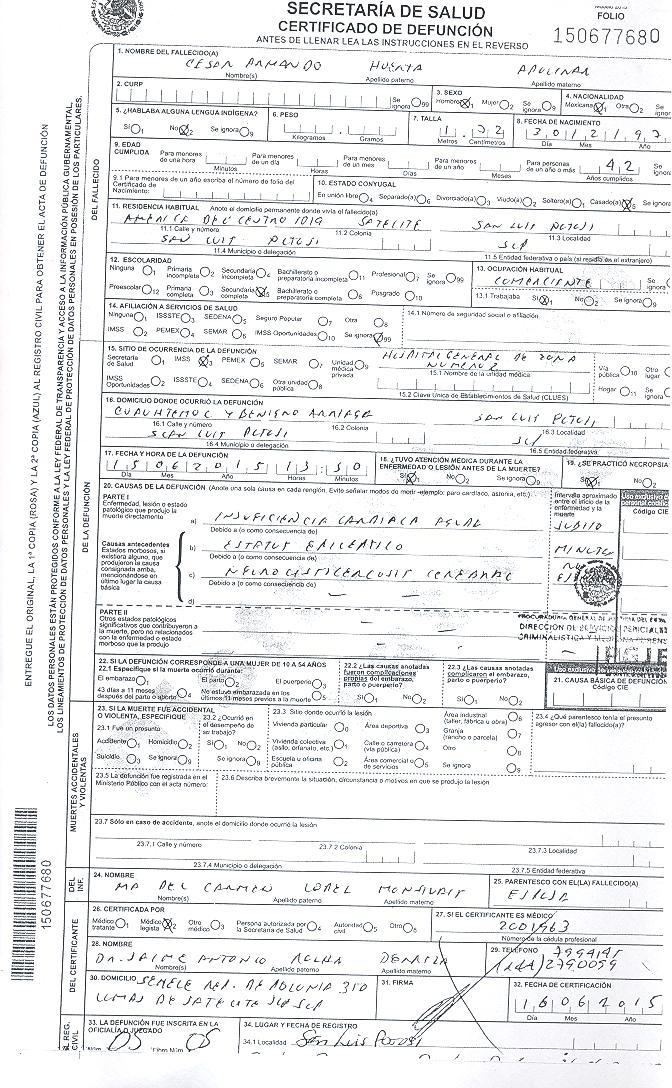 SECRETARÍA DE SALUD
CERTIFICADO DE DEFUNCIÓN
ANTES DE LLENAR LEA LAS INSTRUCCIONES EN EL REVERSO
FOLIO
150677680
1. NOMBRE DEL FALLECIDO(A)
CESAR ARMANDO HUERTA APOLINAR
Nombre(s) Apellido paterno Apellido materno
2. CURP Se ignora 99
3. SEXO Hombre 1 Mujer 2 Se ignora 9
4. NACIONALIDAD Mexicana 1 Otra 2
5. ¿HABLABA ALGUNA LENGUA INDÍGENA? Sí 1 No 2 Se ignora 9
6. PESO Kilogramos Gramos
7. TALLA Metros Centímetros
8. FECHA DE NACIMIENTO 3 0 1 2 1 9 7
Día Mes Año
9. EDAD CUMPLIDA
Para menores de una hora Minutos
Para menores de un día Horas
Para menores de un mes Días
Para menores de un año Meses
Para personas de un año o más 42 Años cumplidos
9.1 Para menores de un año escriba el número de folio del Certificado de Nacimiento:
10. ESTADO CONYUGAL
En unión libre 4 Separado(a) 6 Divorciado(a) 3 Viudo(a) 2 Soltero(a) 1 Casado(a) 5
11. RESIDENCIA HABITUAL Anote el domicilio permanente donde vivía el fallecido(a)
AMERICA DEL CENTRO SATELITE SAN LUIS POTOSI
11.1 Calle y número 11.2 Colonia 11.3 Localidad
SAN LUIS POTOSI SLP
11.4 Municipio o delegación 11.5 Entidad federativa o país (si residía en el extranjero)
12. ESCOLARIDAD
Ninguna 1 Primaria incompleta 2 Secundaria incompleta 4 Bachillerato o preparatoria incompleta 11 Profesional 7 Se ignora 99
Preescolar 12 Primaria completa 3 Secundaria completa 5 Bachillerato o preparatoria completa 6 Posgrado 10
13. OCUPACIÓN HABITUAL
COMERCIANTE
13.1 Trabajaba Sí 1 No 2 Se ignora 9
14. AFILIACIÓN A SERVICIOS DE SALUD
Ninguna 1 ISSSTE 3 SEDENA 5 Seguro Popular 7 Otra 8
IMSS 2 PEMEX 4 SEMAR 6 IMSS Oportunidades 10 Se ignora 99
14.1 Número de seguridad social o afiliación
15. SITIO DE OCURRENCIA DE LA DEFUNCIÓN
Secretaría de Salud 1 IMSS 3 PEMEX 5 SEMAR 7 Unidad médica privada 9
IMSS Oportunidades 2 ISSSTE 4 SEDENA 6 Otra unidad pública 8
HOSPITAL GENERAL DE ZONA
NUMERO 2
15.1 Nombre de la unidad médica
15.2 Clave Única de Establecimientos de Salud (CLUES)
Vía pública 10 Otro lugar
Hogar 11 Se ignora
16. DOMICILIO DONDE OCURRIÓ LA DEFUNCIÓN
CUAUHTEMOC Y BENIGNO ARRIAGA SAN LUIS POTOSI
16.1 Calle y número 16.2 Colonia 16.3 Localidad
SAN LUIS POTOSI SLP
16.4 Municipio o delegación 16.5 Entidad federativa
17. FECHA Y HORA DE LA DEFUNCIÓN
1 5 0 6 2 0 1 5 1 3 : 3 0
Día Mes Año Horas Minutos
18. ¿TUVO ATENCIÓN MÉDICA DURANTE LA ENFERMEDAD O LESIÓN ANTES DE LA MUERTE?
Sí 1 No 2 Se ignora 9
19. ¿SE PRACTICÓ NECROPSIA?
Sí 1 No 2
20. CAUSAS DE LA DEFUNCIÓN (Anote una sola causa en cada renglón. Evite señalar modos de morir -ejemplo: paro cardíaco, astenia, etc.)
PARTE I
Enfermedad, lesión o estado patológico que produjo la muerte directamente
a) INSUFICIENCIA CARDIACA AGUDA
Debido a (o como consecuencia de)
b) ESTATUS EPILEPTICO
Debido a (o como consecuencia de)
c) NEUROCISTICERCOSIS CEREBRAL
Debido a (o como consecuencia de)
d)
Causas antecedentes
Estados morbosos, si existiera alguno, que produjeron la causa consignada arriba, mencionándose en último lugar la causa básica
Intervalo aproximado entre el inicio de la enfermedad y la muerte
SUBITO
MINUTOS
Código CIE
PARTE II
Otros estados patológicos significativos que contribuyeron a la muerte, pero no relacionados con la enfermedad o estado morboso que la produjo
PROCURADURIA GENERAL DE JUSTICIA DEL EDO.
DIRECCION DE SERVICIOS PERICIALES
CRIMINALISTICA Y MEDICINA FORENSE
22. SI LA DEFUNCIÓN CORRESPONDE A UNA MUJER DE 10 A 54 AÑOS
22.1 Especifique si la muerte ocurrió durante:
El embarazo 1 El parto 2 El puerperio 3
43 días a 11 meses después del parto o aborto 4 No estuvo embarazada en los últimos 11 meses previos a la muerte 5
22.2 ¿Las causas anotadas fueron complicaciones propias del embarazo, parto o puerperio? Sí 1 No 2
22.3 ¿Las causas anotadas complicaron el embarazo, parto o puerperio? Sí 1 No 2
21. CAUSA BÁSICA DE DEFUNCIÓN
Código CIE
23. SI LA MUERTE FUE ACCIDENTAL O VIOLENTA, ESPECIFIQUE
23.1 Fue un presunto
Accidente 1 Homicidio 2
Suicidio 3 Se ignora 9
23.2 ¿Ocurrió en el desempeño de su trabajo?
Sí 1 No 2
Se ignora 9
23.3 Sitio donde ocurrió la lesión
Vivienda particular 0 Área deportiva 3 Área industrial (taller, fábrica u obra) 6
Vivienda colectiva (asilo, orfanato, etc.) 1 Calle o carretera (vía pública) 4 Granja (rancho o parcela) 7
Escuela u oficina pública 2 Área comercial o de servicios 5 Otro 8
Se ignora 9
23.4 ¿Qué parentesco tenía el presunto agresor con el(la) fallecido(a)?
23.5 La defunción fue registrada en el Ministerio Público con el acta número:
23.6 Describa brevemente la situación, circunstancia o motivos en que se produjo la lesión
23.7 Sólo en caso de accidente, anote el domicilio donde ocurrió la lesión
23.7.1 Calle y número 23.7.2 Colonia 23.7.3 Localidad
23.7.4 Municipio o delegación 23.7.5 Entidad federativa
24. NOMBRE
MA DEL CARMEN
Nombre(s) Apellido paterno Apellido materno
25. PARENTESCO CON EL(LA) FALLECIDO(A)
ESPOSA
26. CERTIFICADA POR
Médico tratante 1 Médico legista 2 Otro médico 3 Persona autorizada por la Secretaría de Salud 4 Autoridad civil 5 Otro 8
27. SI EL CERTIFICANTE ES MÉDICO
2001963
Número de cédula profesional
28. NOMBRE
DR. JAIME ANTONIO
Nombre(s) Apellido paterno Apellido materno
29. TELÉFONO
(444) 2790059
30. DOMICILIO
LOMAS DE SATELITE SLP SLP
31. FIRMA
32. FECHA DE CERTIFICACIÓN
1 6 0 6 2 0 1 5
Día Mes Año
33. LA DEFUNCIÓN FUE INSCRITA EN LA OFICIALÍA O JUZGADO
05 05
34. LUGAR Y FECHA DE REGISTRO
34.1 Localidad San Luis Potosí
DEL FALLECIDO
DE LA DEFUNCIÓN
MUERTES ACCIDENTALES Y VIOLENTAS
DEL INF.
DEL CERTIFICANTE
REG. CIVIL
ENTREGUE EL ORIGINAL, LA 1ª COPIA (ROSA) Y LA 2ª COPIA (AZUL) AL REGISTRO CIVIL PARA OBTENER EL ACTA DE DEFUNCIÓN
LOS DATOS PERSONALES ESTÁN PROTEGIDOS CONFORME A LA LEY FEDERAL DE TRANSPARENCIA Y ACCESO A LA INFORMACIÓN PÚBLICA GUBERNAMENTAL,
LOS LINEAMIENTOS DE PROTECCIÓN DE DATOS PERSONALES Y LA LEY FEDERAL DE PROTECCIÓN DE DATOS PERSONALES EN POSESIÓN DE LOS PARTICULARES.
150677680